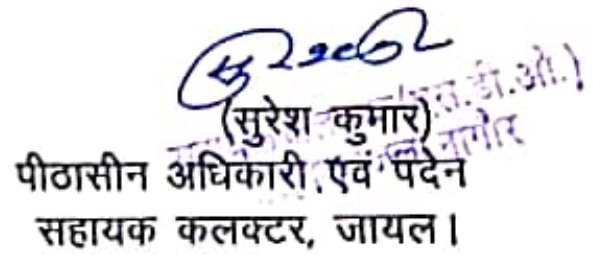 (सुरेश कुमार)
पीठासीन अधिकारी एवं पदेन
सहायक कलक्टर, जायल।